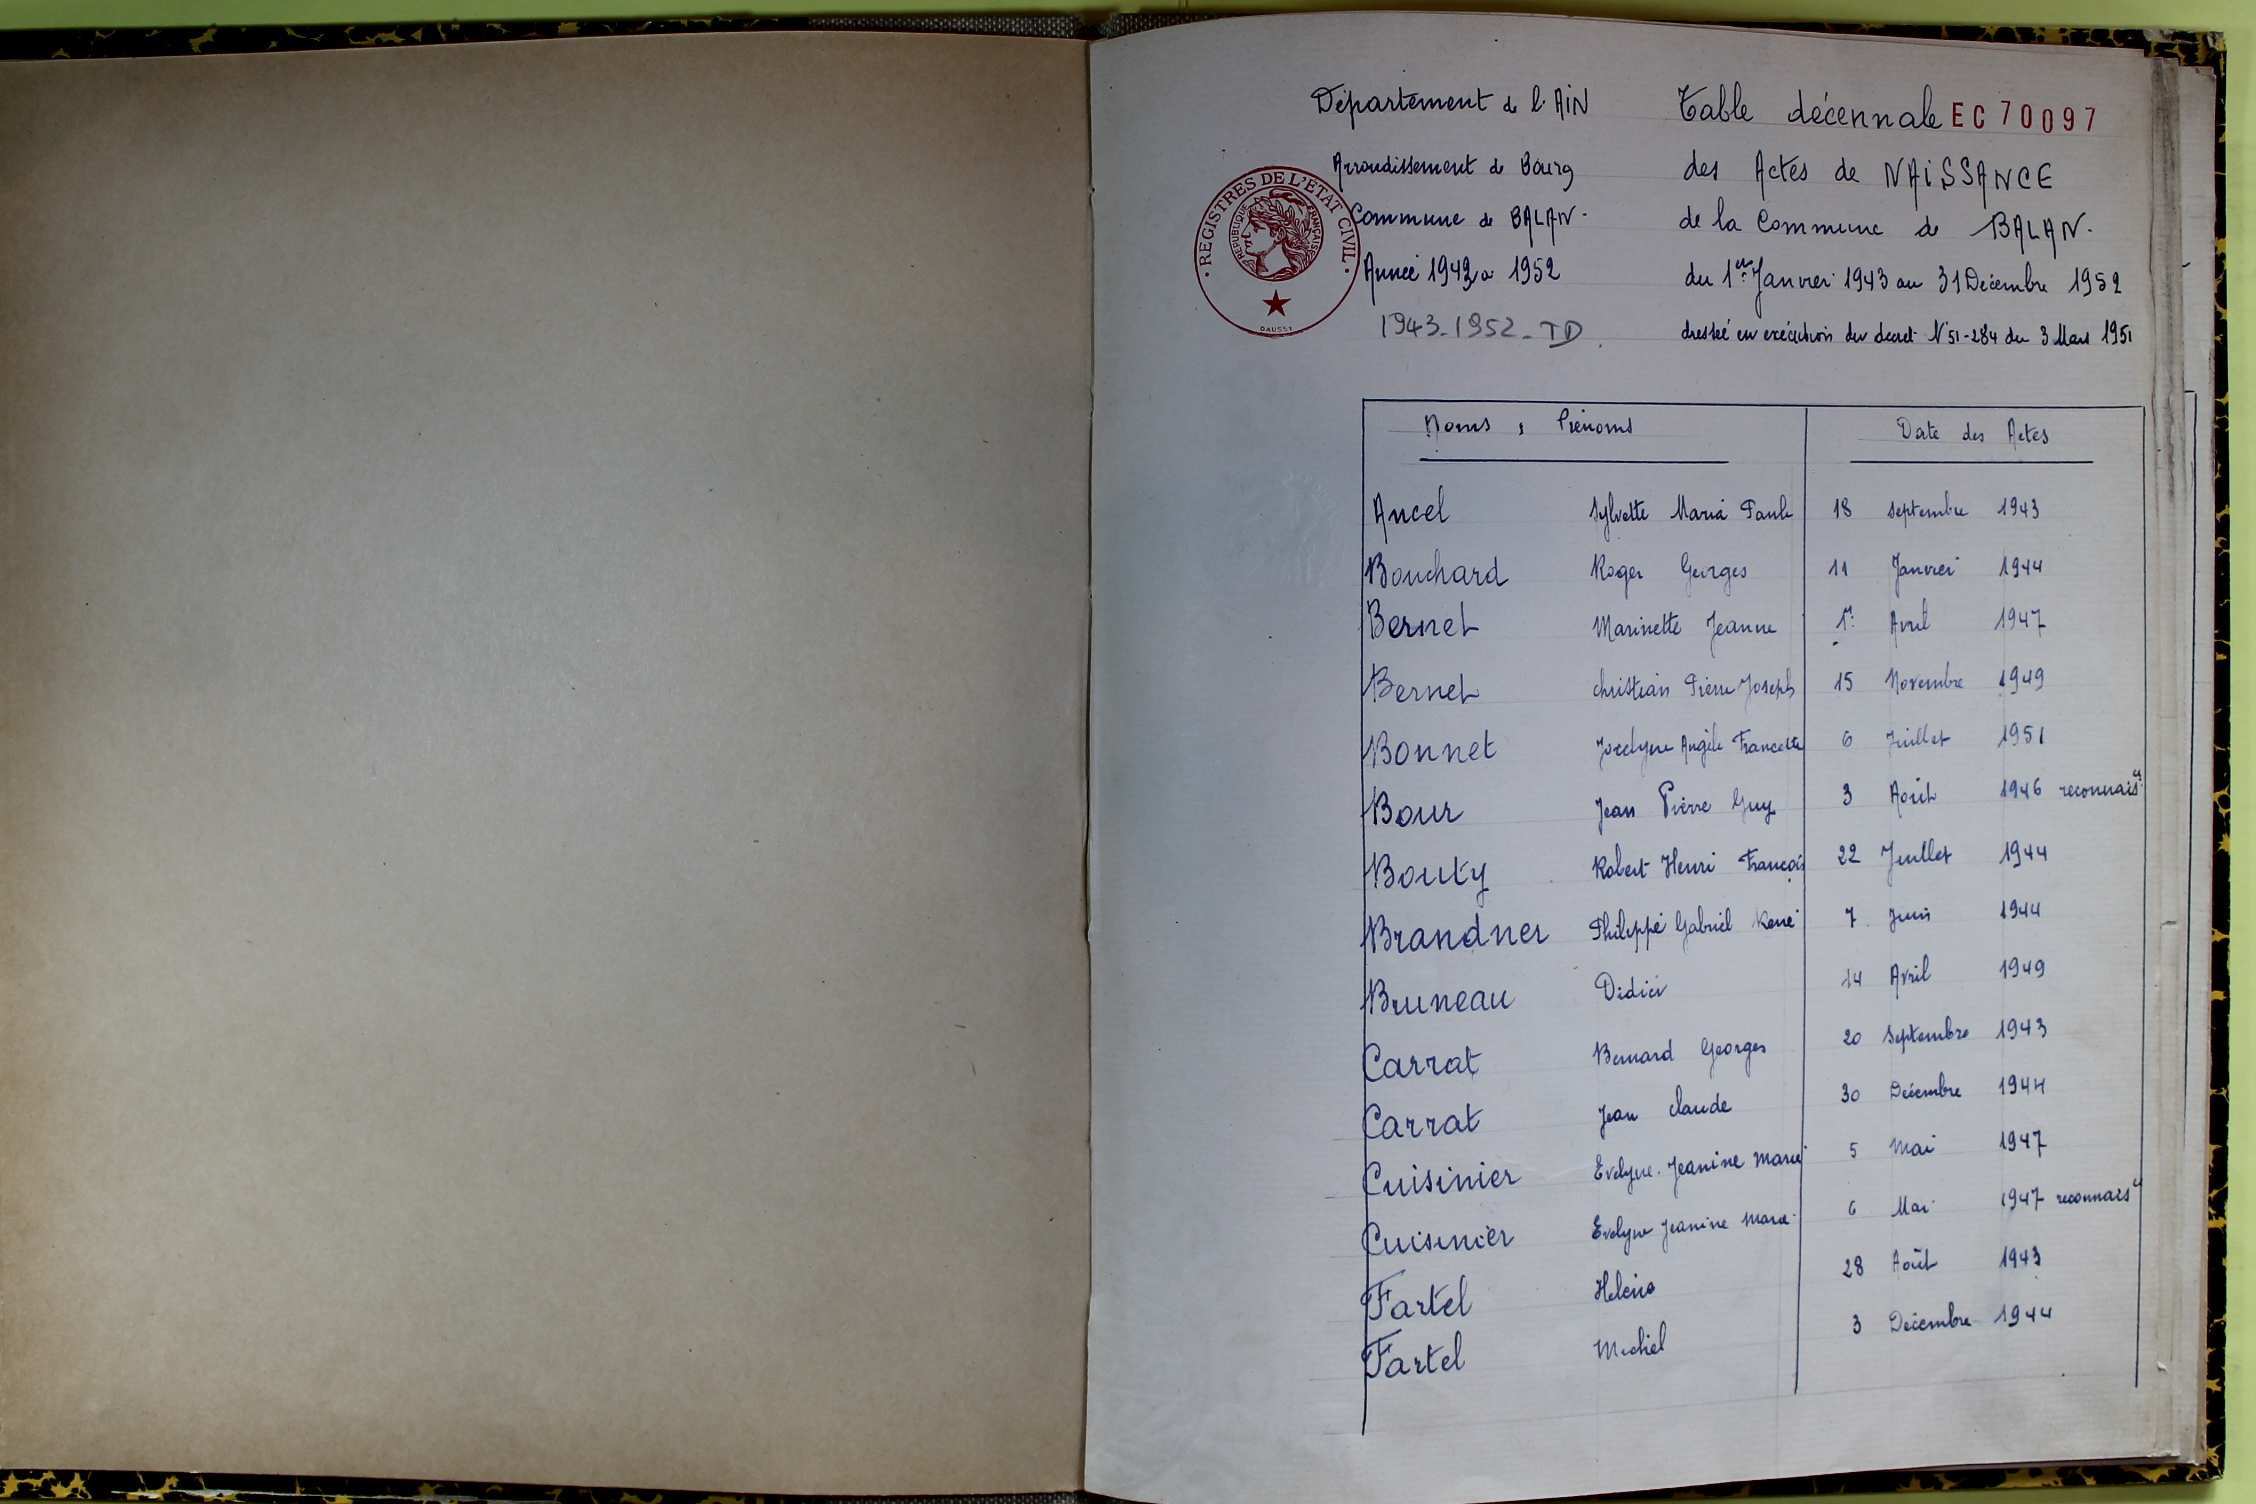 Département de l'AiN
Arrondissement de Bourg
Commune de BALAN.
Année 1943 à 1952
1943-1952-TD.
REGISTRES DE L'ÉTAT CIVIL
RÉPUBLIQUE FRANÇAISE
Table décennale EC 70097
des Actes de NAiSSANCE
de la Commune de BALAN.
du 1er Janvier 1943 au 31 Décembre 1952
dressée en exécution du décret N°51-284 du 3 Mars 1951
Noms, Prénoms Date des Actes
Ancel Sylvette Maria Paule 18 septembre 1943
Bouchard Roger Georges 11 Janvier 1944
Bernet Marinette Jeanne 1er Avril 1947
Bernet Christian Pierre Joseph 15 Novembre 1949
Bonnet Jocelyne Angèle Francette 6 Juillet 1951
Bour Jean Pierre Guy 3 Août 1946 reconnaisce
Bouty Robert Henri François 22 Juillet 1944
Brandner Philippe Gabriel René 7 Juin 1944
Bruneau Didier 14 Avril 1949
Carrat Bernard Georges 20 Septembre 1943
Carrat Jean Claude 30 Décembre 1944
Cuisinier Evelyne Jeanine Marie 5 Mai 1947
Cuisinier Evelyne Jeanine Marie 6 Mai 1947 reconnaisce
Fartel 28 Août 1943
Fartel Michel 3 Décembre 1944